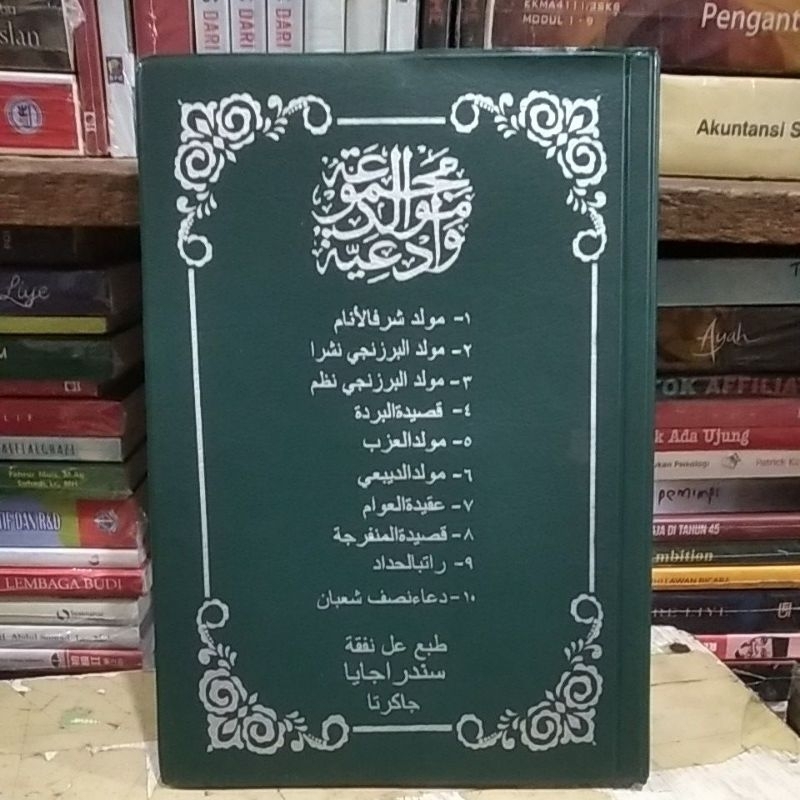 مجموعة
موالد
وادعية
١- مولد شرفالأنام
٢- مولد البرزنجي نشرا
٣- مولد البرزنجي نظم
٤- قصيدةالبردة
٥- مولدالعزب
٦- مولدالديبعي
٧- عقيدةالعوام
٨- قصيدةالمنفرجة
٩- راتبالحداد
١٠- دعاءنصف شعبان
طبع عل نفقة
سندراجايا
جاكرتا
EKMA4111/3SKS
MODUL 1 - 9
Pengant
Akuntansi S
DARI
DARI
DARI
slan
Liye
LEMBAGA BUDI
Ayah
TOK AFFILIA
k Ada Ujung
Patrick K
pemimpi
JA DI TAHUN 45
mbition